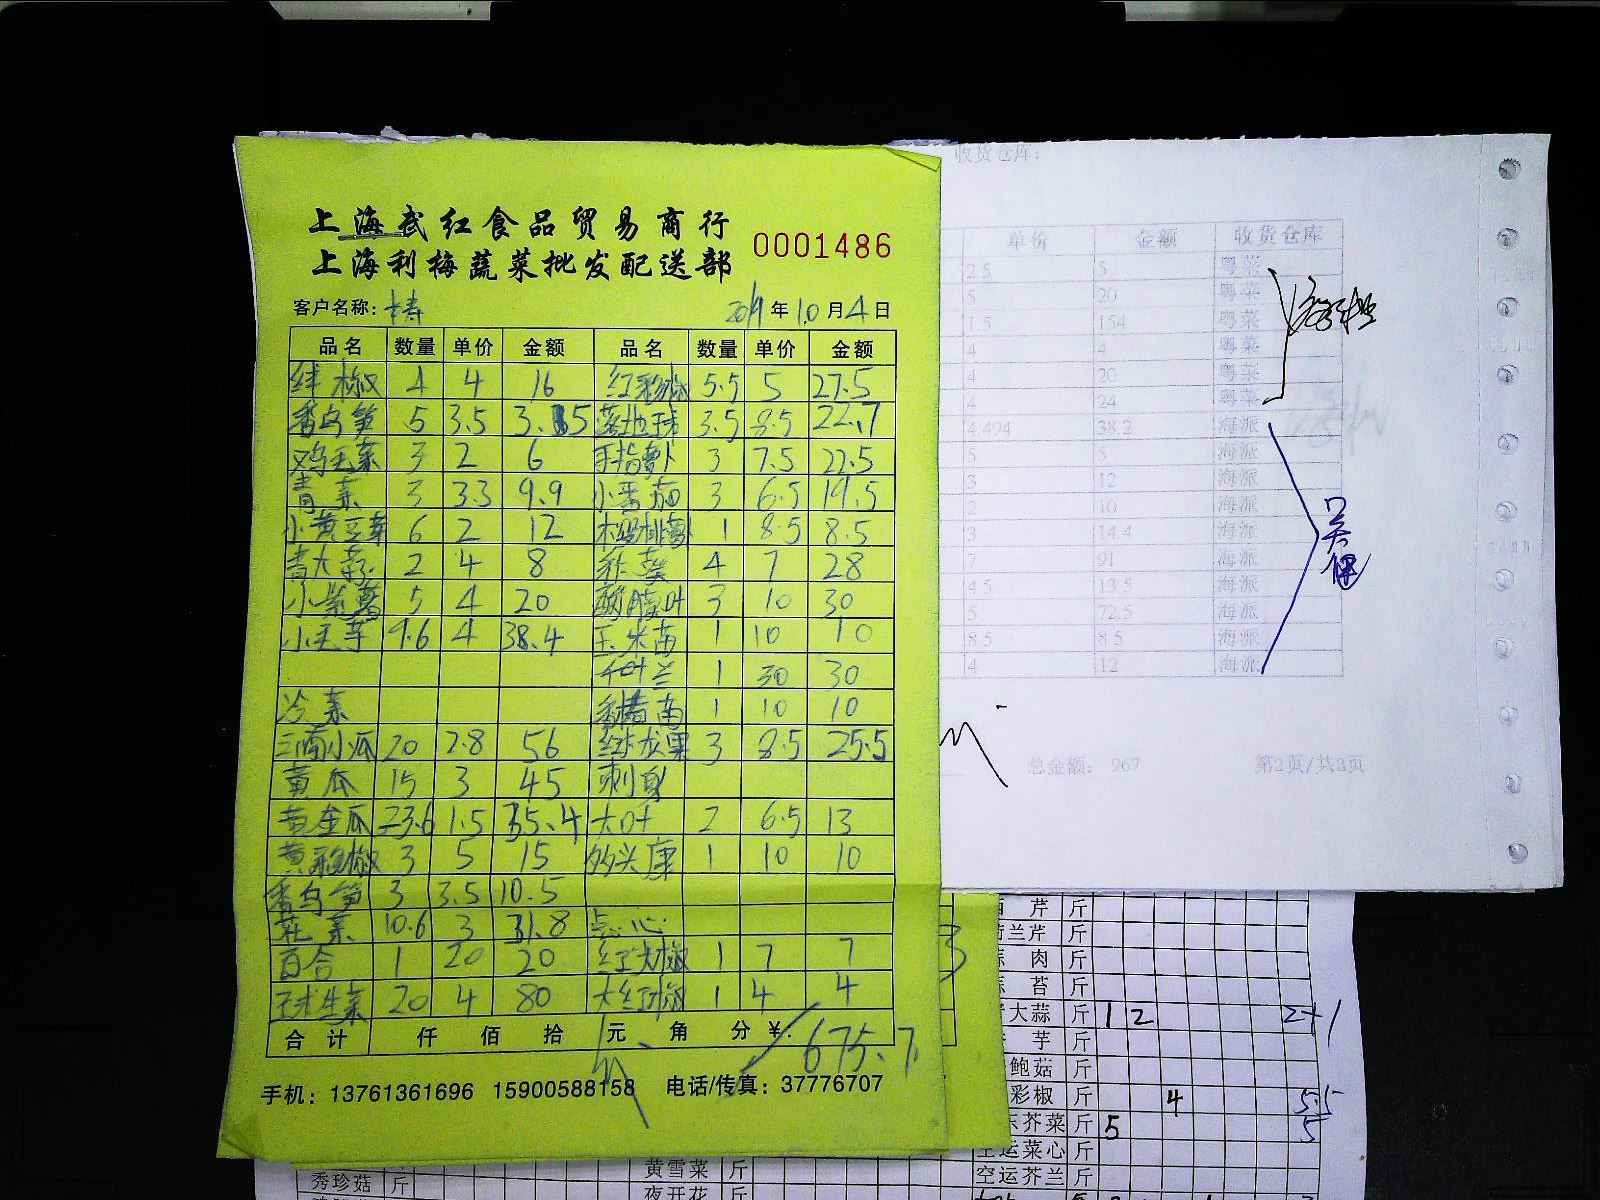 上海武红食品贸易商行
上海利梅蔬菜批发配送部
0001486
客户名称: 2019年10月4日
品名 数量 单价 金额 品名 数量 单价 金额
绊椒 4 4 16 红彩椒 5.5 5 27.5
香乌笋 5 3.5 落地球 3.5 8.5 22.7
鸡毛菜 3 2 6 手指萝卜 3 7.5 22.5
青菜 3 3.3 9.9 小番茄 3 6.5 19.5
小黄豆芽 6 2 12 1 8.5 8.5
青大蒜 2 4 8 秋葵 4 7 28
小紫薯 5 4 20 酸膜叶 3 10 30
小毛芋 9.6 4 38.4 玉米苗 1 10 10
千叶兰 1 30 30
冷菜 1 10 10
20 2.8 56 红火龙果 3 8.5 25.5
黄瓜 15 3 45 刺身
黄金瓜 23.6 1.5 35.4 大叶 2 6.5 13
黄彩椒 3 5 15 1 10 10
香乌笋 3 3.5 10.5
花菜 10.6 3 31.8 点心
百合 1 20 20 红尖椒 1 7 7
球生菜 20 4 80 大红椒 1 4 4
合计 仟 佰 拾 元 角 分 ¥: 675.7
手机: 13761361696 15900588158 电话/传真: 37776707
收货仓库:
单价 金额 收货仓库
2.5 5 粤菜
5 20 粤菜
1.5 154 粤菜
4 4 粤菜
4 20 粤菜
4 24 粤菜
4.494 38.2 海派
5 5 海派
3 12 海派
2 10 海派
3 14.4 海派
7 91 海派
4.5 13.5 海派
5 72.5 海派
8.5 8.5 海派
4 12 海派
总金额: 967 第2页/共3页
芹 斤
兰芹 斤
肉 斤
苔 斤
大蒜 斤 1 2 2+1
芋 斤
鲍菇 斤
彩椒 斤 4 5.5
芥菜 斤 5 5
空运菜心 斤
空运芥兰 斤
秀珍菇 斤
黄雪菜 斤
夜开花 斤